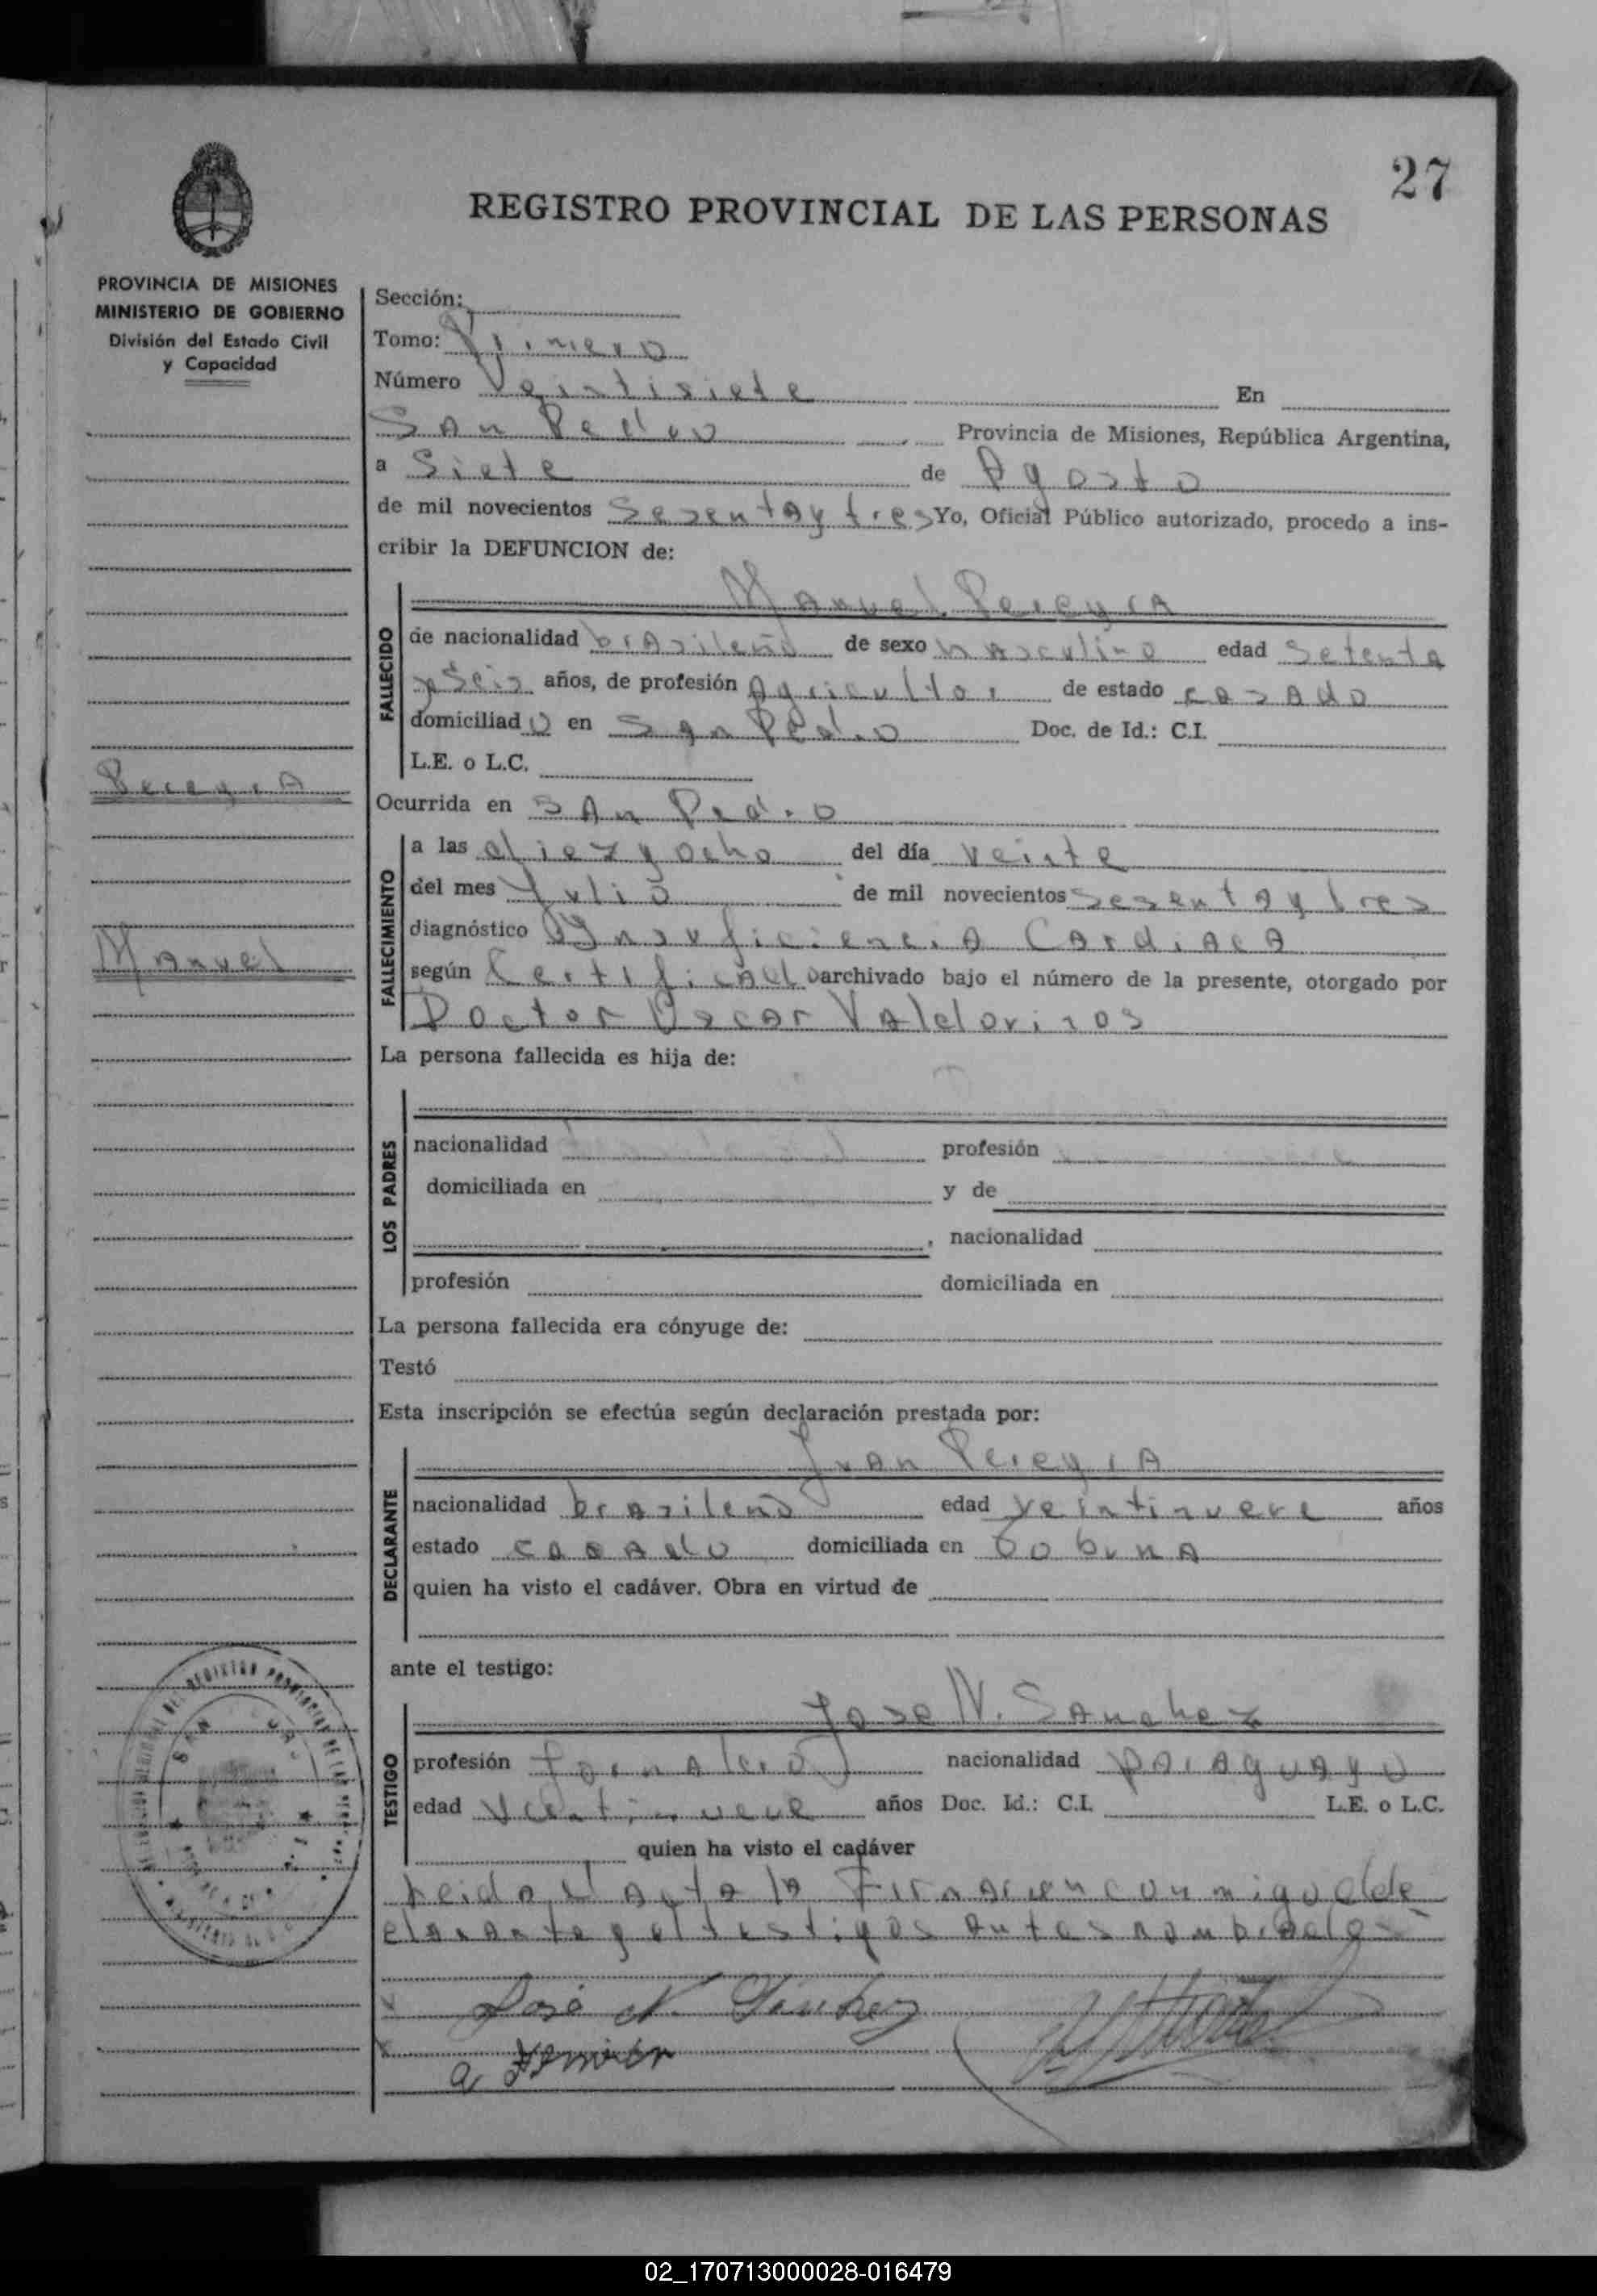 27
REGISTRO PROVINCIAL DE LAS PERSONAS
PROVINCIA DE MISIONES
MINISTERIO DE GOBIERNO
División del Estado Civil
y Capacidad
Pereyra
Manuel
Sección:
Tomo: Primero
Número Veintisiete En
San Pedro Provincia de Misiones, República Argentina,
a Siete de Agosto
de mil novecientos Sesenta y tres Yo, Oficial Público autorizado, procedo a ins-
cribir la DEFUNCION de:
FALLECIDO
Manuel Pereyra
de nacionalidad brasileño de sexo masculino edad Setenta
y Seis años, de profesión Agricultor de estado casado
domiciliado en San Pedro Doc. de Id.: C.I.
L.E. o L.C.
Ocurrida en San Pedro
FALLECIMIENTO
a las diez y ocho del día veinte
del mes Julio de mil novecientos sesenta y tres
diagnóstico Ynsuficiencia Cardiaca
según Certificado archivado bajo el número de la presente, otorgado por
Doctor Oscar
La persona fallecida es hija de:
LOS PADRES
nacionalidad profesión
domiciliada en y de
, nacionalidad
profesión domiciliada en
La persona fallecida era cónyuge de:
Testó
Esta inscripción se efectúa según declaración prestada por:
DECLARANTE
Juan Pereyra
nacionalidad brasileño edad veintinueve años
estado casado domiciliada en
quien ha visto el cadáver. Obra en virtud de
ante el testigo:
TESTIGO
Jose N. Sanchez
profesión Jornalero nacionalidad paraguayo
edad veintinueve años Doc. Id.: C.I. L.E. o L.C.
quien ha visto el cadáver
Leida el Acta la Firmaron conmigo el de
clarante y el testigos antes nombrados
José N. Sánchez
02_170713000028-016479